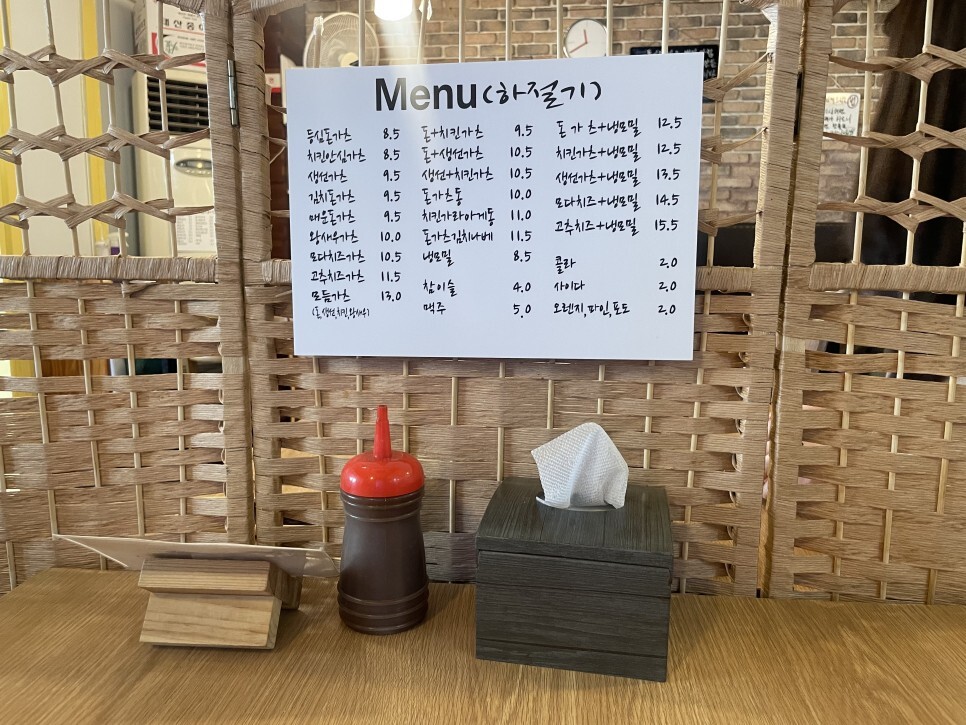 Menu(하절기)
등심돈가츠 8.5
치킨안심가츠 8.5
생선가츠 9.5
김치돈가츠 9.5
매운돈가츠 9.5
왕새우가츠 10.0
모다치즈가츠 10.5
고추치즈가츠 11.5
모듬가츠 13.0
(돈,생선,치킨,왕새우)
돈+치킨가츠 9.5
돈+생선가츠 10.5
생선+치킨가츠 10.5
돈가츠동 10.0
치킨가라아게동 11.0
돈가츠김치나베 11.5
냉모밀 8.5
참이슬 4.0
맥주 5.0
돈가츠+냉모밀 12.5
치킨가츠+냉모밀 12.5
생선가츠+냉모밀 13.5
모다치즈+냉모밀 14.5
고추치즈+냉모밀 15.5
콜라 2.0
사이다 2.0
오렌지,파인,포도 2.0